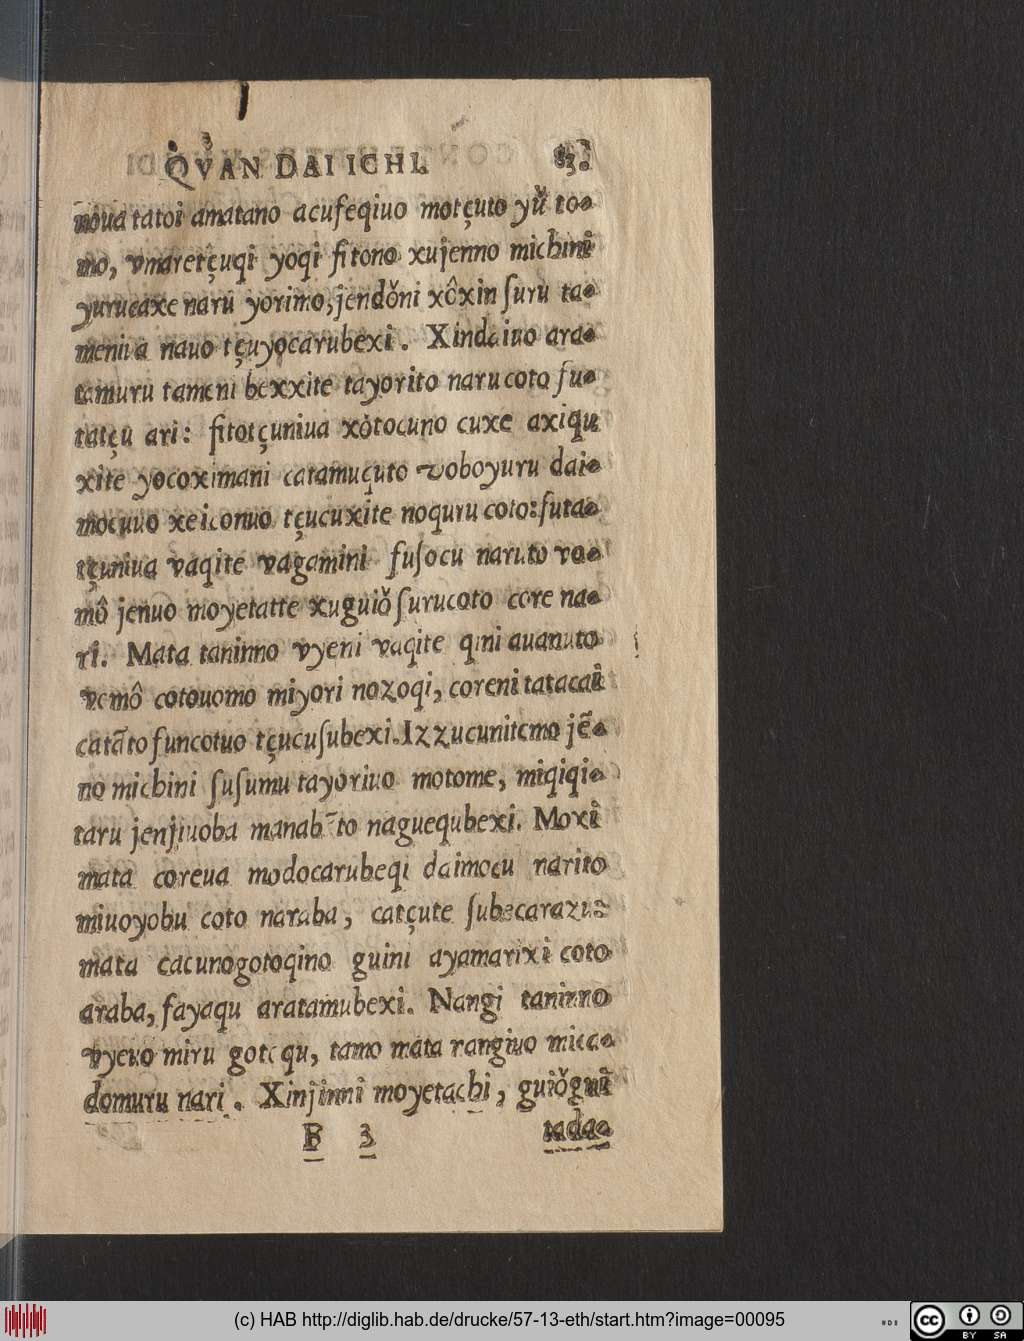 QVAN DAI ICHI.
noua tatoi amatano acuſeqiuo motçuto yŭ to-
mo, vmaretçuqi yoqi fitono xujenno michini
yurucaxe naru yorimo, jendǒni xôxin ſuru ta-
meniua nauo tçuyocarubexi. Xindaiuo ara-
tamuru tameni bexxite tayorito naru coto fu-
tatçu ari: fitotçuniua xǒtocuno cuxe axiqu
xite yocoximani catamucuto voboyuru dai-
mocuuo xeiconuo tçucuxite noquru coto: futa-
tçuniua vaqite vagamini fuſocu naruto vo-
mô jenuo moyetatte xuguiǒ ſurucoto core na-
ri. Mata taninno vyeni vaqite qini auanuto
vomô cotouomo miyori nozoqi, coreni tatacai
catãto funcotuo tçucuſubexi. Izzucunitemo jẽ-
no michini ſuſumu tayoriuo motome, miqiqi-
taru jenjiuoba manabãto naguequbexi. Moxi
mata coreua modocarubeqi daimocu narito
miuoyobu coto naraba, catçute ſubecarazu:
mata cacunogotoqino guini ayamarixi coto
araba, fayaqu aratamubexi. Nangi taninno
vyeuo miru gotoqu, tamo mata nangiuo mito-
domuru nari. Xinjinni moyetachi, guiǒgui
B 3 tada-
(c) HAB http://diglib.hab.de/drucke/57-13-eth/start.htm?image=00095
CC BY SA